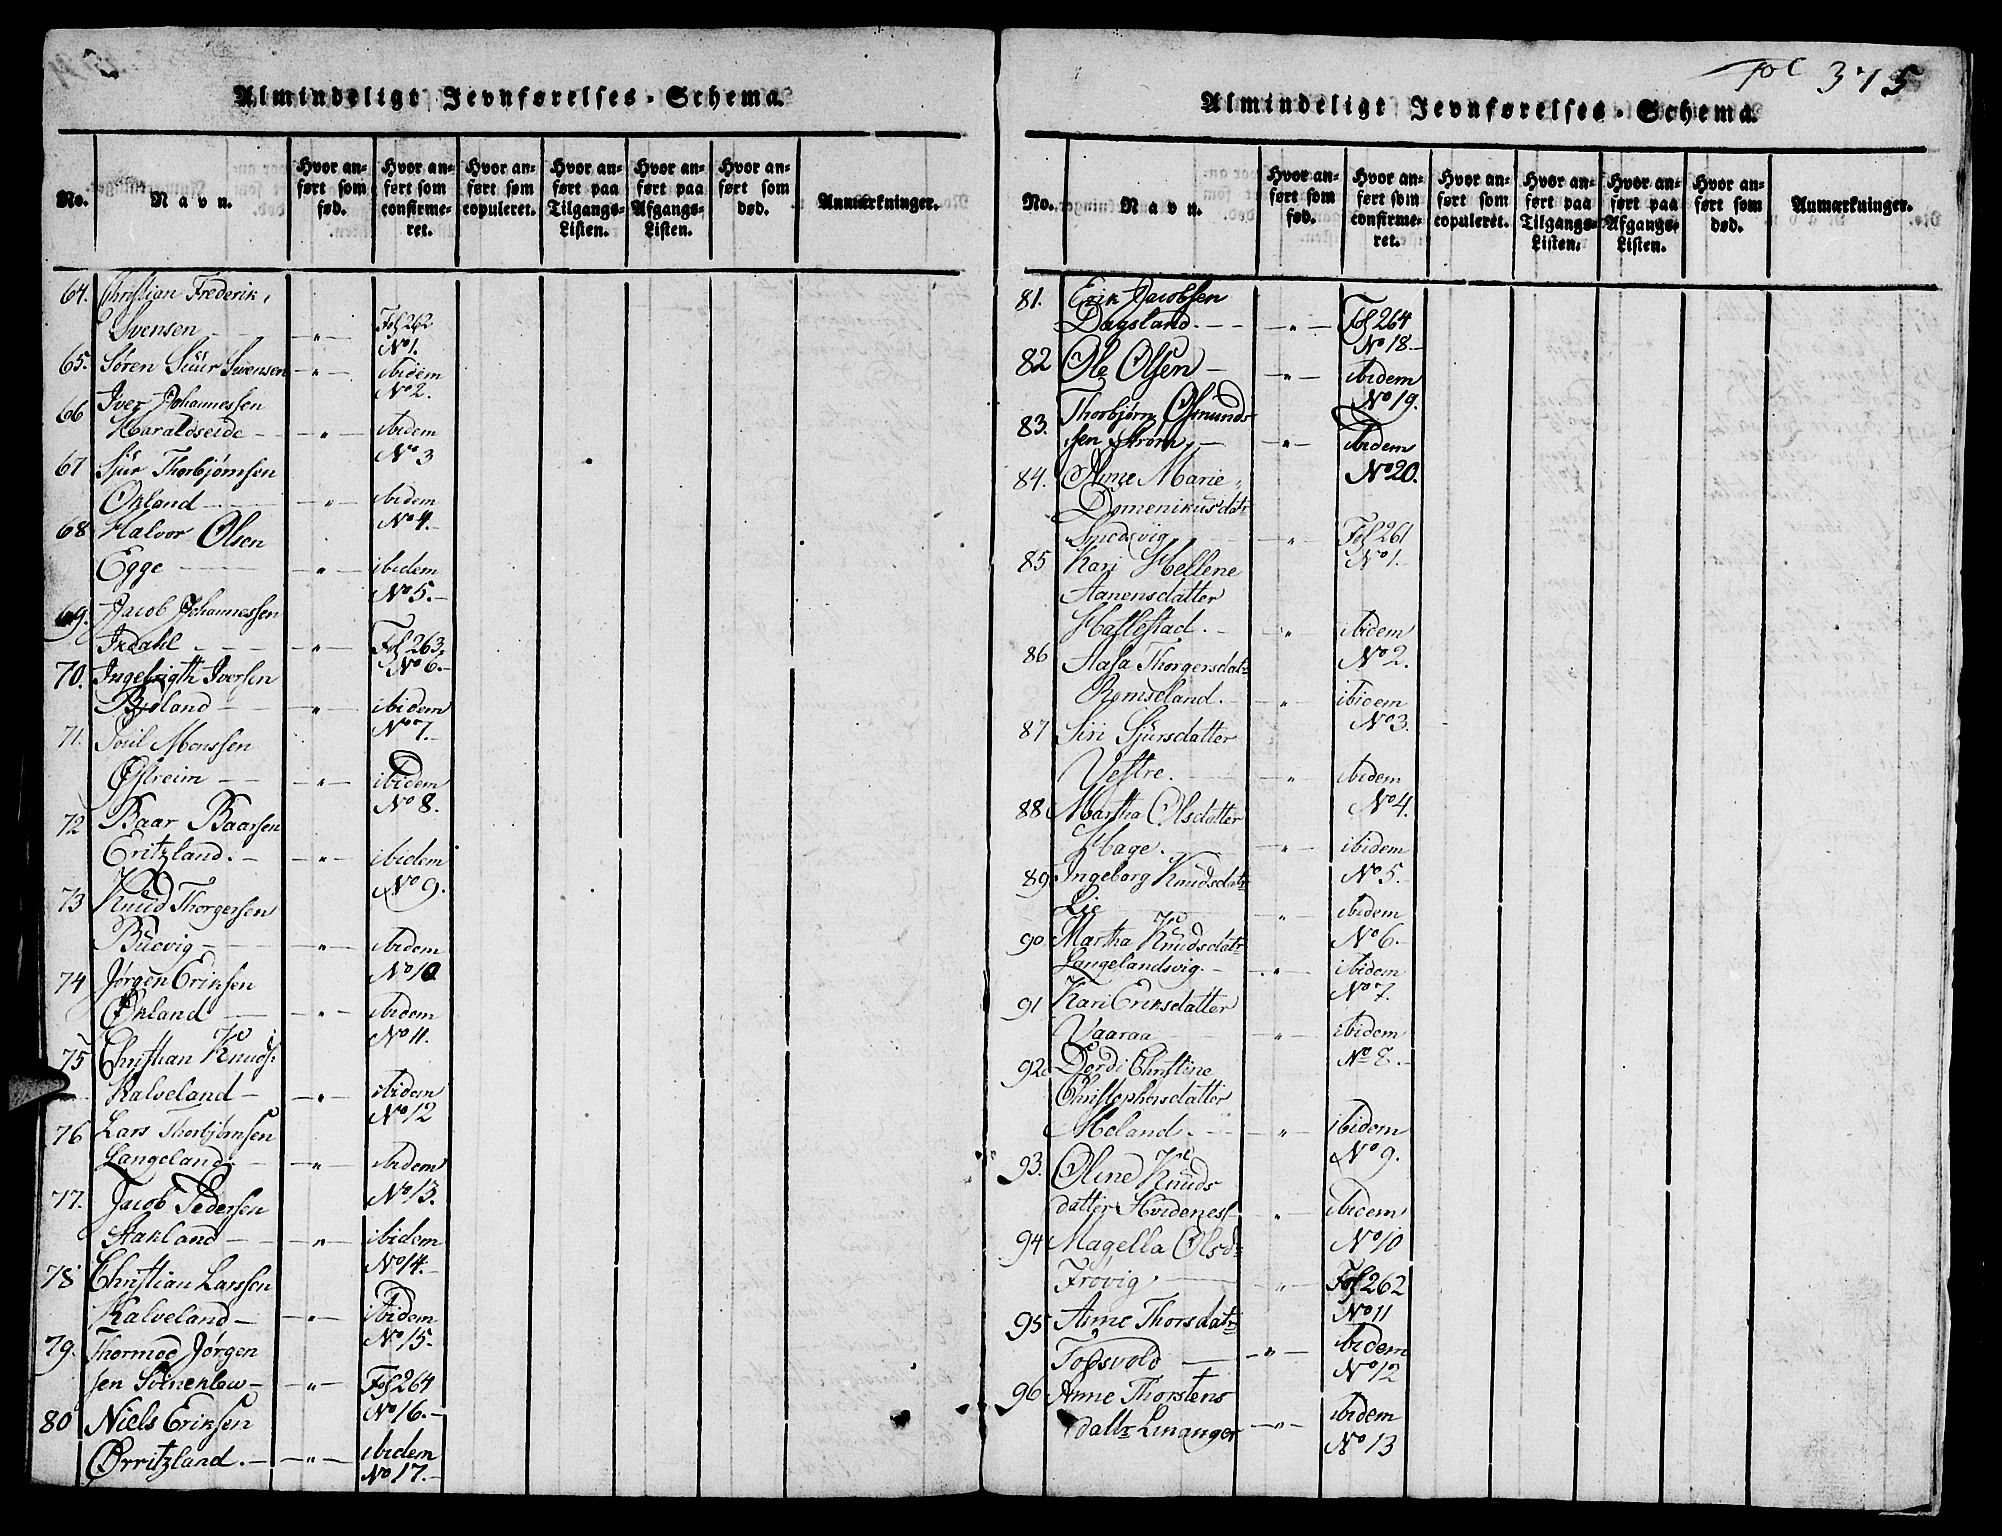 Almindeligt Jevnførelses-Schema.
No.
Navn.
Hvor anført som fød.
Hvor anført som confirmeret.
Hvor anført som copuleret.
Hvor anført paa Tilgangs-Listen.
Hvor anført paa Afgangs-Listen.
Hvor anført som død.
Anmærkninger.
64. Christian Frederik
Svensen — " — Fol 262
No 1.
65. Søren Siur Svensen — " — ibidem
No 2.
66 Iver Johannessen
Haraldseide — " — ibidem
No 3
67 Sjur Thorbjørnsen
Økland — " — ibidem
No 4.
68 Halvor Olsen
Egge — " — ibidem
No 5.
69. Jacob Johannessen
Ixdahl — " — Fol 263,
No 6.
70. Ingebrigth Iversen
Buoland — " — ibidem
No 7.
71. Poül Monssen
Østreim — " — ibidem
No 8.
72 Baar Baarsen
Eritzland. — " — ibidem
No 9.
73 Knud Thorgersen
Buevig — " — ibidem
No 10
74 Jørgen Eriksen
Økland — " — ibidem
No 11.
75 Christian Knuds:
Kalveland — " — ibidem
No 12
76 Lars Thorbjørnsen
Langeland. — " — ibidem
No 13.
77. Jacob Pedersen
Aakland — " — ibidem
No 14.
78 Christian Larssen
Kalveland — " — ibidem
No 15.
79. Thormod Jørgen
sen Svineklew — " — Fol 264
No 16.
80 Niels Eriksen
Ørritzland. — " — ibidem
No 17.
fol 375
Almindeligt Jevnførelses-Schema.
No.
Navn.
Hvor anført som fød.
Hvor anført som confirmeret.
Hvor anført som copuleret.
Hvor anført paa Tilgangs-Listen.
Hvor anført paa Afgangs-Listen.
Hvor anført som død.
Anmærkninger.
81. Erik Jacobsen
Dagsland. — " — Fol 264
No 18.
82 Ole Olsen — " — ibidem
No 19.
83. Thorbjørn Osmunds
sen Strøm, — " — ibidem
No 20.
84. Anne Marie
Domenikusdatr
Smedsvig — " — Fol 261
No 1.
85 Kari Hellene
Aanensdatter
Hallestad. — " — ibidem
No 2.
86 Aasa Thorgersdatr
Romseland. — " — ibidem
No 3.
87 Siri Sjursdatter
Vestre. — " — ibidem
No 4.
88 Martha Olsdatter
Hage. — " — ibidem
No 5.
89 Ingeborg Knudsdatr
Lie — " — ibidem
No 6.
90 Martha Knudsdatr
Langelandsvig. — " — ibidem
No 7.
91 Kari Eriksdatter
Vaaraa — " — ibidem
No 8.
92 Dordi Christine
Christophersdatter
Meland. — " — ibidem
No 9.
93. Oline Knuds
datter Hvidenes — " — ibidem
No 10
94 Magella Olsdr
Frøvig — " — Fol 262
No 11
95 Anne Thorsdatr
Todsvold — " — ibidem
No 12
96 Anne Thorstens
datr Linanger — " — ibidem
No 13